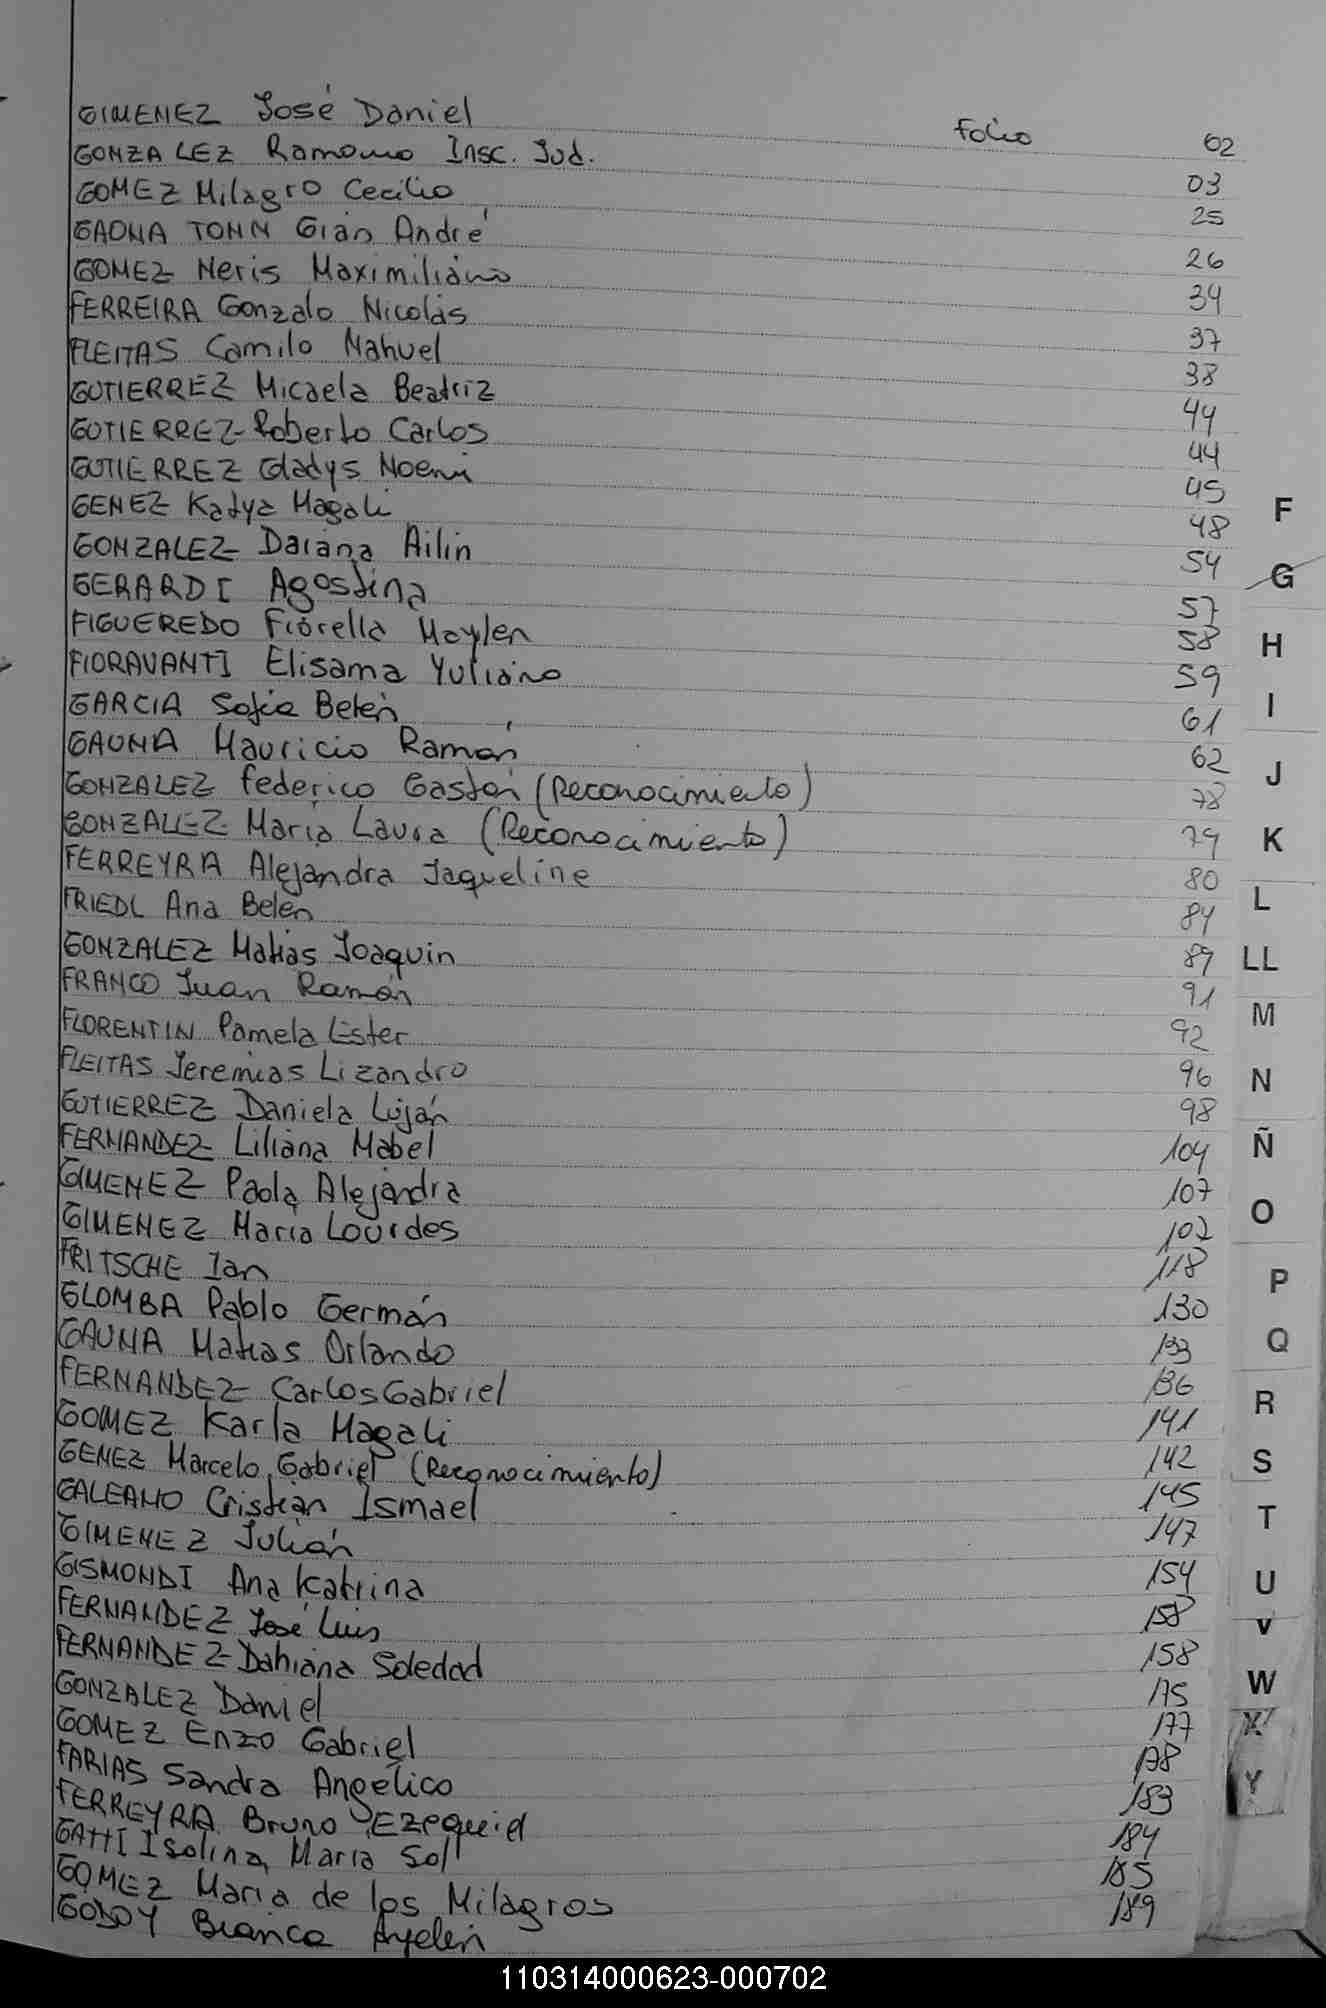 GIMENEZ José Daniel Folio 02
GONZALEZ Ramona Insc. Jud. 03
GOMEZ Milagro Cecilia 25
GAONA TONN Gian André 26
GOMEZ Neris Maximiliano 34
FERREIRA Gonzalo Nicolás 37
FLEITAS Camilo Nahuel 38
GUTIERREZ Micaela Beatriz 44
GUTIERREZ Roberto Carlos 44
GUTIERREZ Gladys Noemi 45
GENEZ Katya Magali 48
GONZALEZ Daiana Ailin 54
GERARDI Agostina 57
FIGUEREDO Fiorella Maylen 58
FIORAVANTI Elisama Yuliana 59
GARCIA Sofia Belén 61
GAUNA Mauricio Ramón 62
GONZALEZ Federico Gastón (Reconocimiento) 78
GONZALEZ María Laura (Reconocimiento) 79
FERREYRA Alejandra Jaqueline 80
FRIEDL Ana Belén 84
GONZALEZ Matias Joaquin 89
FRANCO Juan Ramón 91
FLORENTIN Pamela Ester 92
FLEITAS Jeremias Lizandro 96
GUTIERREZ Daniela Luján 98
FERNANDEZ Liliana Mabel 104
GIMENEZ Paola Alejandra 107
GIMENEZ María Lourdes 107
FRITSCHE Ian 118
GLOMBA Pablo Germán 130
GAUNA Matias Orlando 133
FERNANDEZ Carlos Gabriel 136
GOMEZ Karla Magali 141
GENEZ Marcelo Gabriel (Reconocimiento) 142
GALEANO Cristian Ismael 145
GIMENEZ Julián 147
GISMONDI Ana Katrina 154
FERNANDEZ José Luis 158
FERNANDEZ Dahiana Soledad 158
GONZALEZ Daniel 175
GOMEZ Enzo Gabriel 177
FARIAS Sandra Angélica 178
FERREYRA Bruno Ezequiel 183
GATTI Isolina María Sol 184
GOMEZ María de los Milagros 185
GODOY Bianca Ayelén 189
F
G
H
I
J
K
L
LL
M
N
Ñ
O
P
Q
R
S
T
U
V
W
X
Y
110314000623-000702